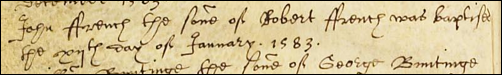 John ffrench the sone of Robert ffrench was baptised
the xvjth day of January. 1583.
Buntinge the sone of George Buntinge